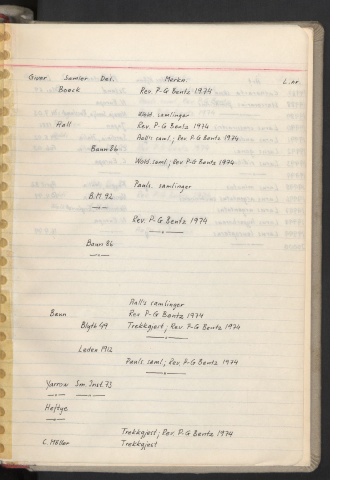 Giver. Samler Det. Merkn. L.nr.
Boeck Rev. P-G Bentz 1974
Wold. samlinger
Aall Rev. P-G Bentz 1974
Aall's saml.; Rev. P-G Bentz 1974
Baun 86
Wold saml.; Rev. P-G Bentz 1974
Pauls. samlinger
B.M 92
Rev. P-G Bentz 1974
Baun 86
Aall's samlinger
Baun Rev P-G Bentz 1974
Blyth 49 Trekkgjest; Rev. P-G Bentz 1974
Laden 1912
Pauls saml.; Rev. P-G Bentz 1974
Yarrow Sm. Inst. 73
Heftye
Trekkgjest; Rev. P-G Bentz 1974
C. Möller Trekkgjest